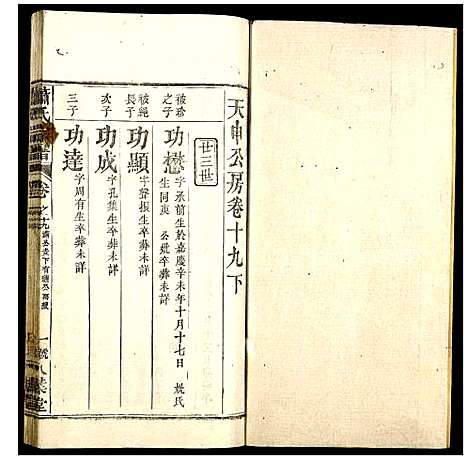 天申公房卷十九下
廿三世
被珍之子
功懋 字承前生於嘉慶辛未年十月十七日 娶氏
生同爽 公妣卒葬未詳
被純長子
功顯 字聲振生卒葬未詳
次子
功成 字孔集生卒葬未詳
三子
功達 字周有生卒葬未詳
蕭氏
卷之十九
八葉堂